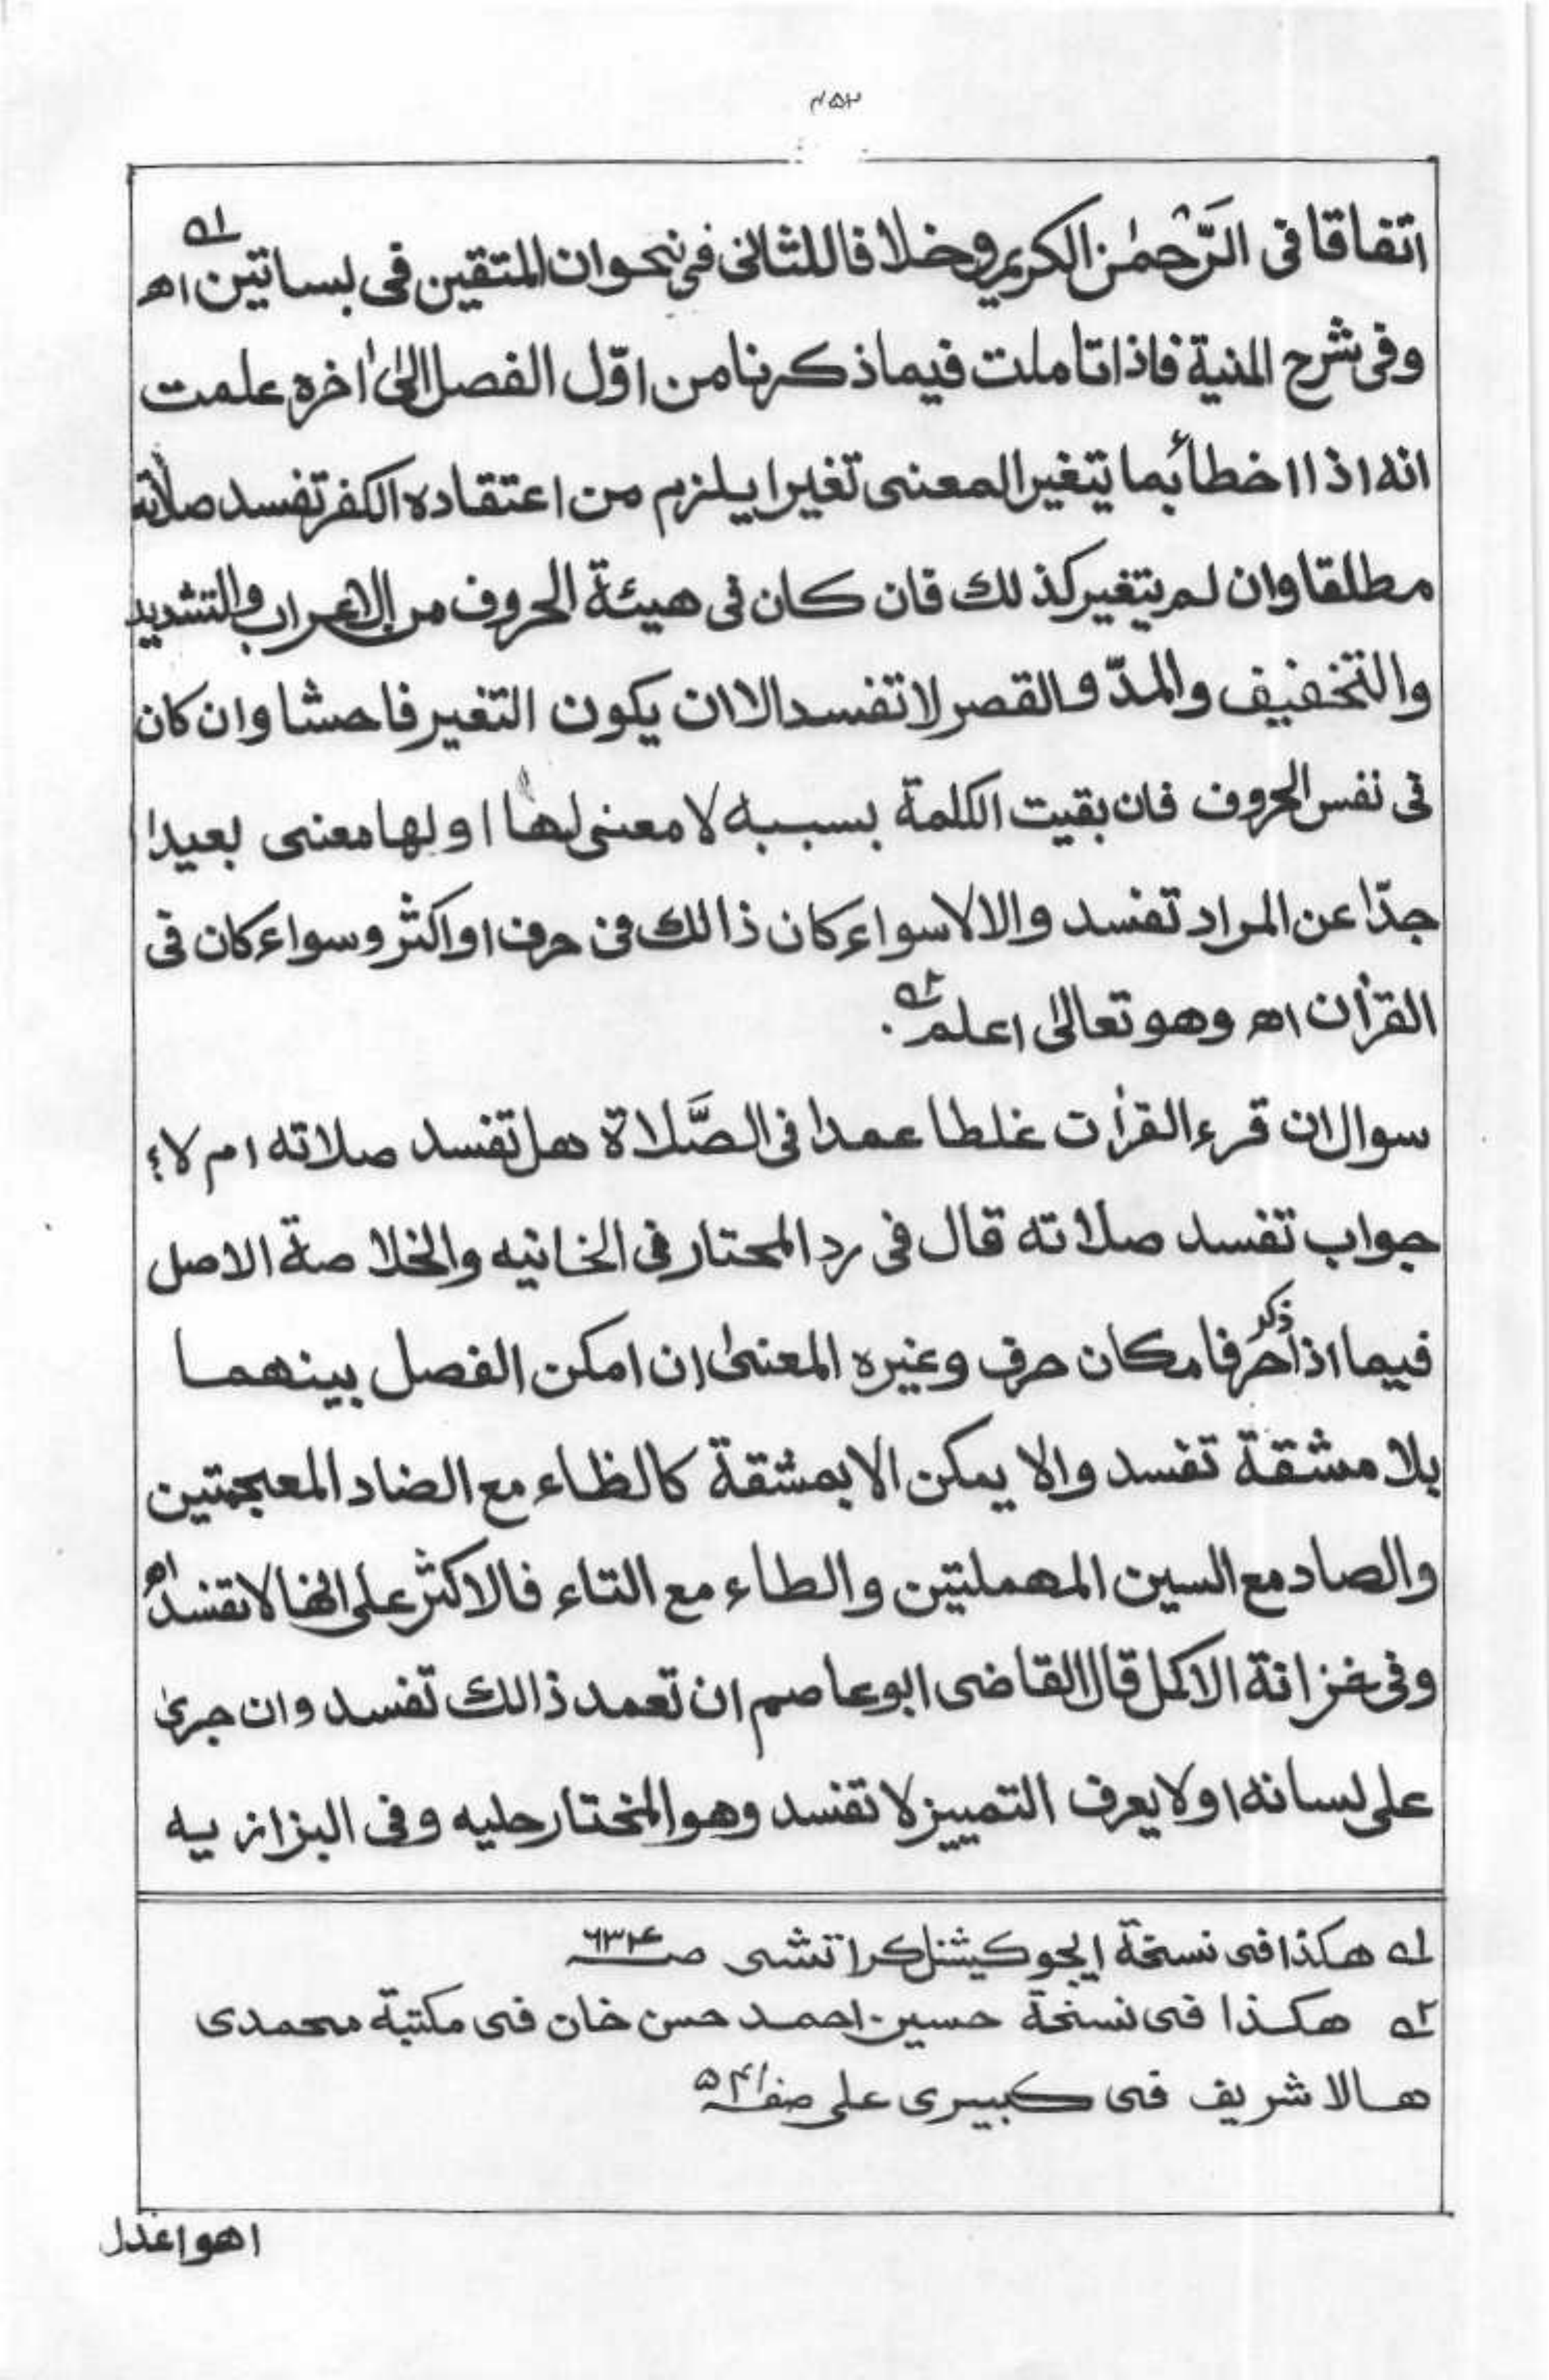 ۴۵۲
اتفاقا فی الرَّحْمٰن الکریم وخلافا للثانی فی نحو ان المتقین فی بساتین اھ ۱ه
وفی شرح المنیة فاذا تاملت فیما ذکرنا من اوّل الفصل الیٰ اٰخره علمت
انه اذا اخطأ بما یتغیر المعنی تغیرا یلزم من اعتقاده الکفر تفسد صلاته
مطلقا وان لم یتغیر کذلك فان کان فی هیئة الحروف من الاعراب والتشدید
والتخفیف والمدّ والقصر لا تفسد الا ان یکون التغیر فاحشا وان کان
فی نفس الحروف فان بقیت الکلمة بسببه لا معنی لها او لها معنی بعیدا
جدّا عن المراد تفسد والا لا سواء کان ذالك فی حرف او اکثر وسواء کان فی
القرأن اھ وهو تعالیٰ اعلم ۲ه .
سوال ان قرء القرأت غلطا عمدا فی الصَّلاة هل تفسد صلاته ام لا؟
جواب تفسد صلاته قال فی رد المحتار فی الخانیه والخلاصة الاصل
فیما اذا ذکر حرفا مکان حرف وغیره المعنیٰ ان امکن الفصل بینهما
بلا مشقة تفسد والا یمکن الا بمشقة کالظاء مع الضاد المعجمتین
والصاد مع السین المهملتین والطاء مع التاء فالاکثر علی انها لا تفسد اھ
وفی خزانة الاکمل قال القاضی ابو عاصم ان تعمد ذالك تفسد وان جریٰ
علی لسانه او لا یعرف التمییز لا تفسد وهو المختار حلیه وفی البزازیه
۱ه هکذا فی نسخة ایجوکیشنل کراتشی صـ ۶۳۴
۲ه هکذا فی نسخة حسین احمد حسن خان فی مکتبة محمدی
هالا شریف فی کبیری علی صفـ
اھو اعدل